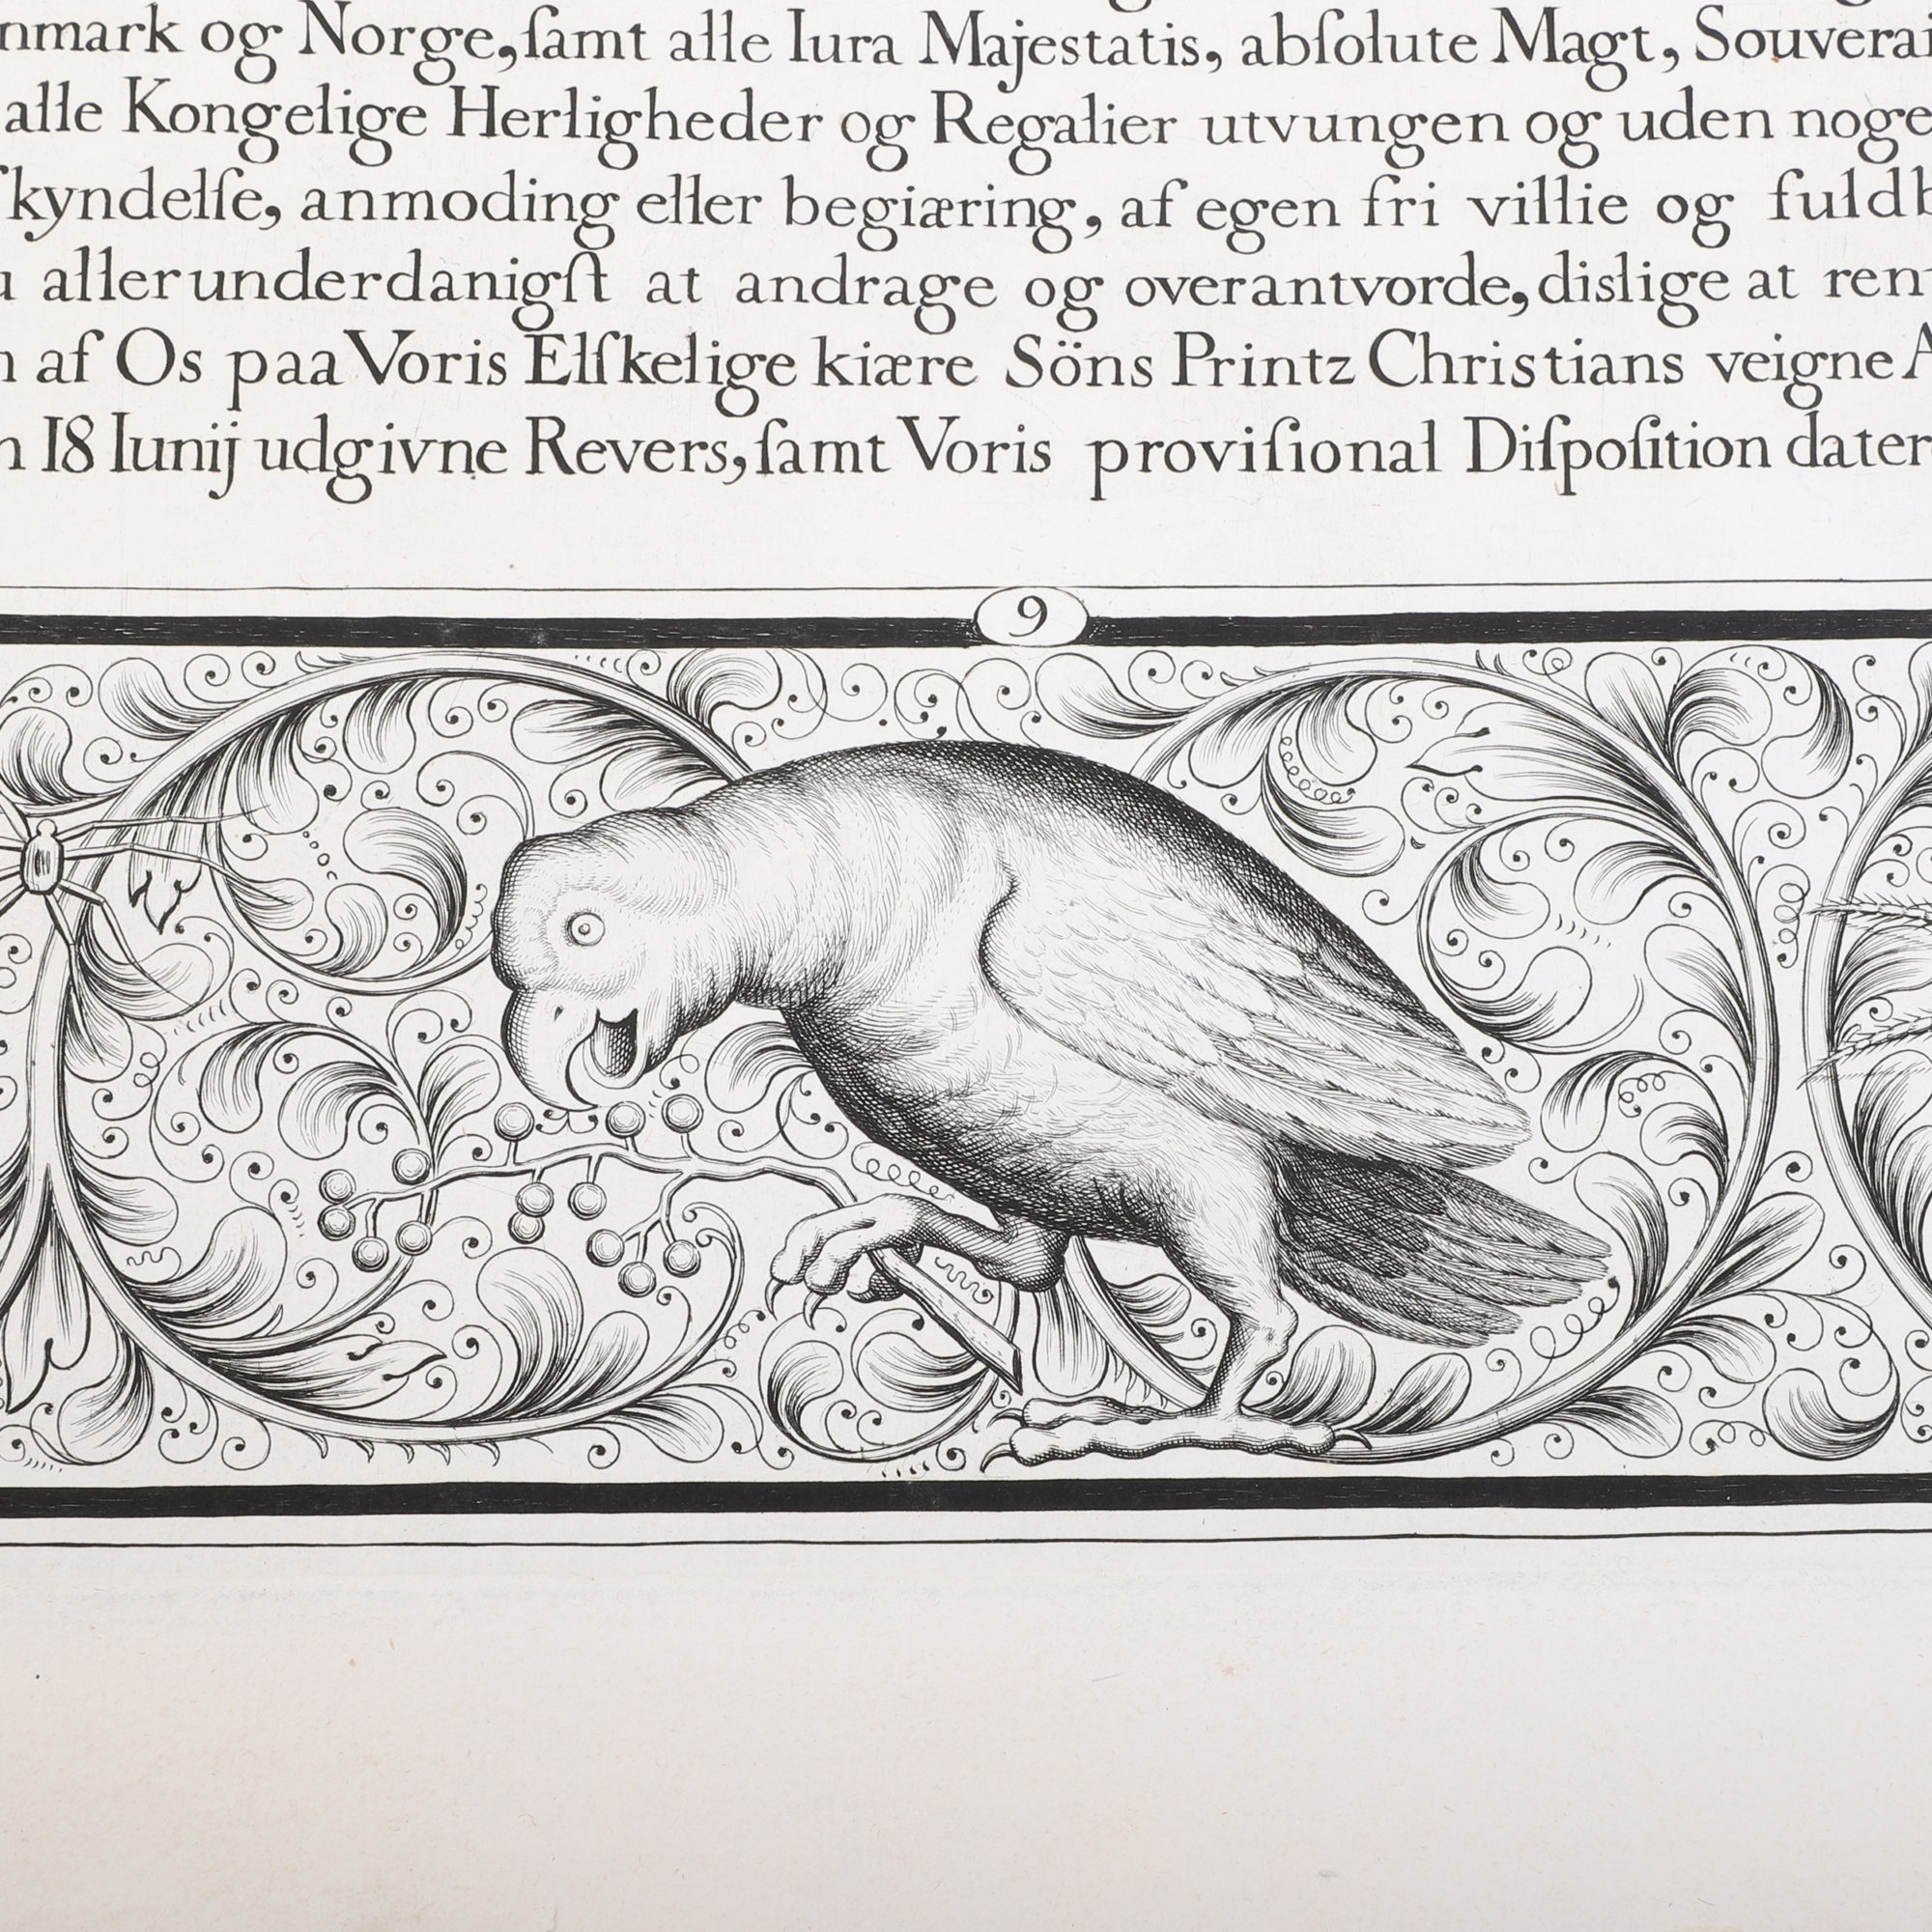 og Norge, ſamt alle Iura Majestatis, abſolute Magt,
alle Kongelige Herligheder og Regalier utvungen og uden
anmoding eller begiæring, af egen fri villie og
allerunderdanigſt at andrage og overantvorde, dislige at
af Os paa Voris Elſkelige kiære Söns Printz Christians veigne
18 Iunij udgivne Revers, ſamt Voris proviſional Diſpoſition
9